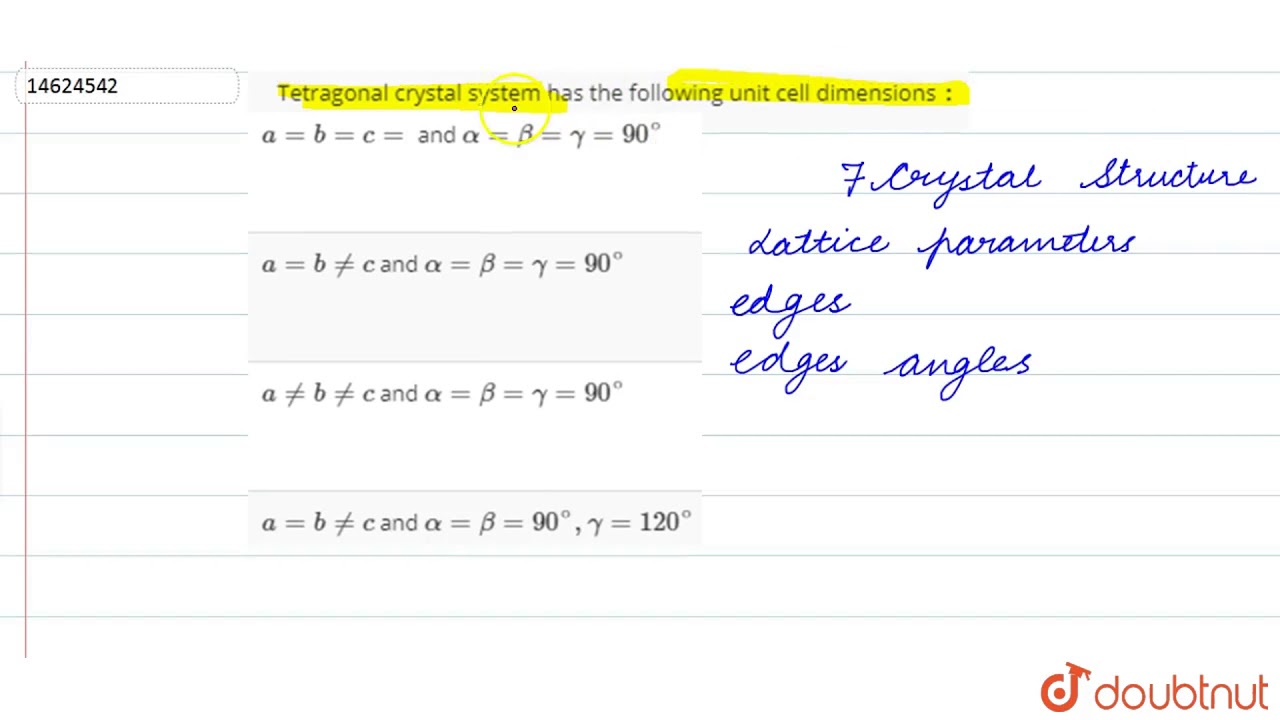 14624542
Tetragonal crystal system has the following unit cell dimensions :
a = b = c = and α = β = γ = 90°
a = b ≠ c and α = β = γ = 90°
a ≠ b ≠ c and α = β = γ = 90°
a = b ≠ c and α = β = 90°, γ = 120°
7 Crystal Structure
Lattice parameters
edges
edges angles
doubtnut